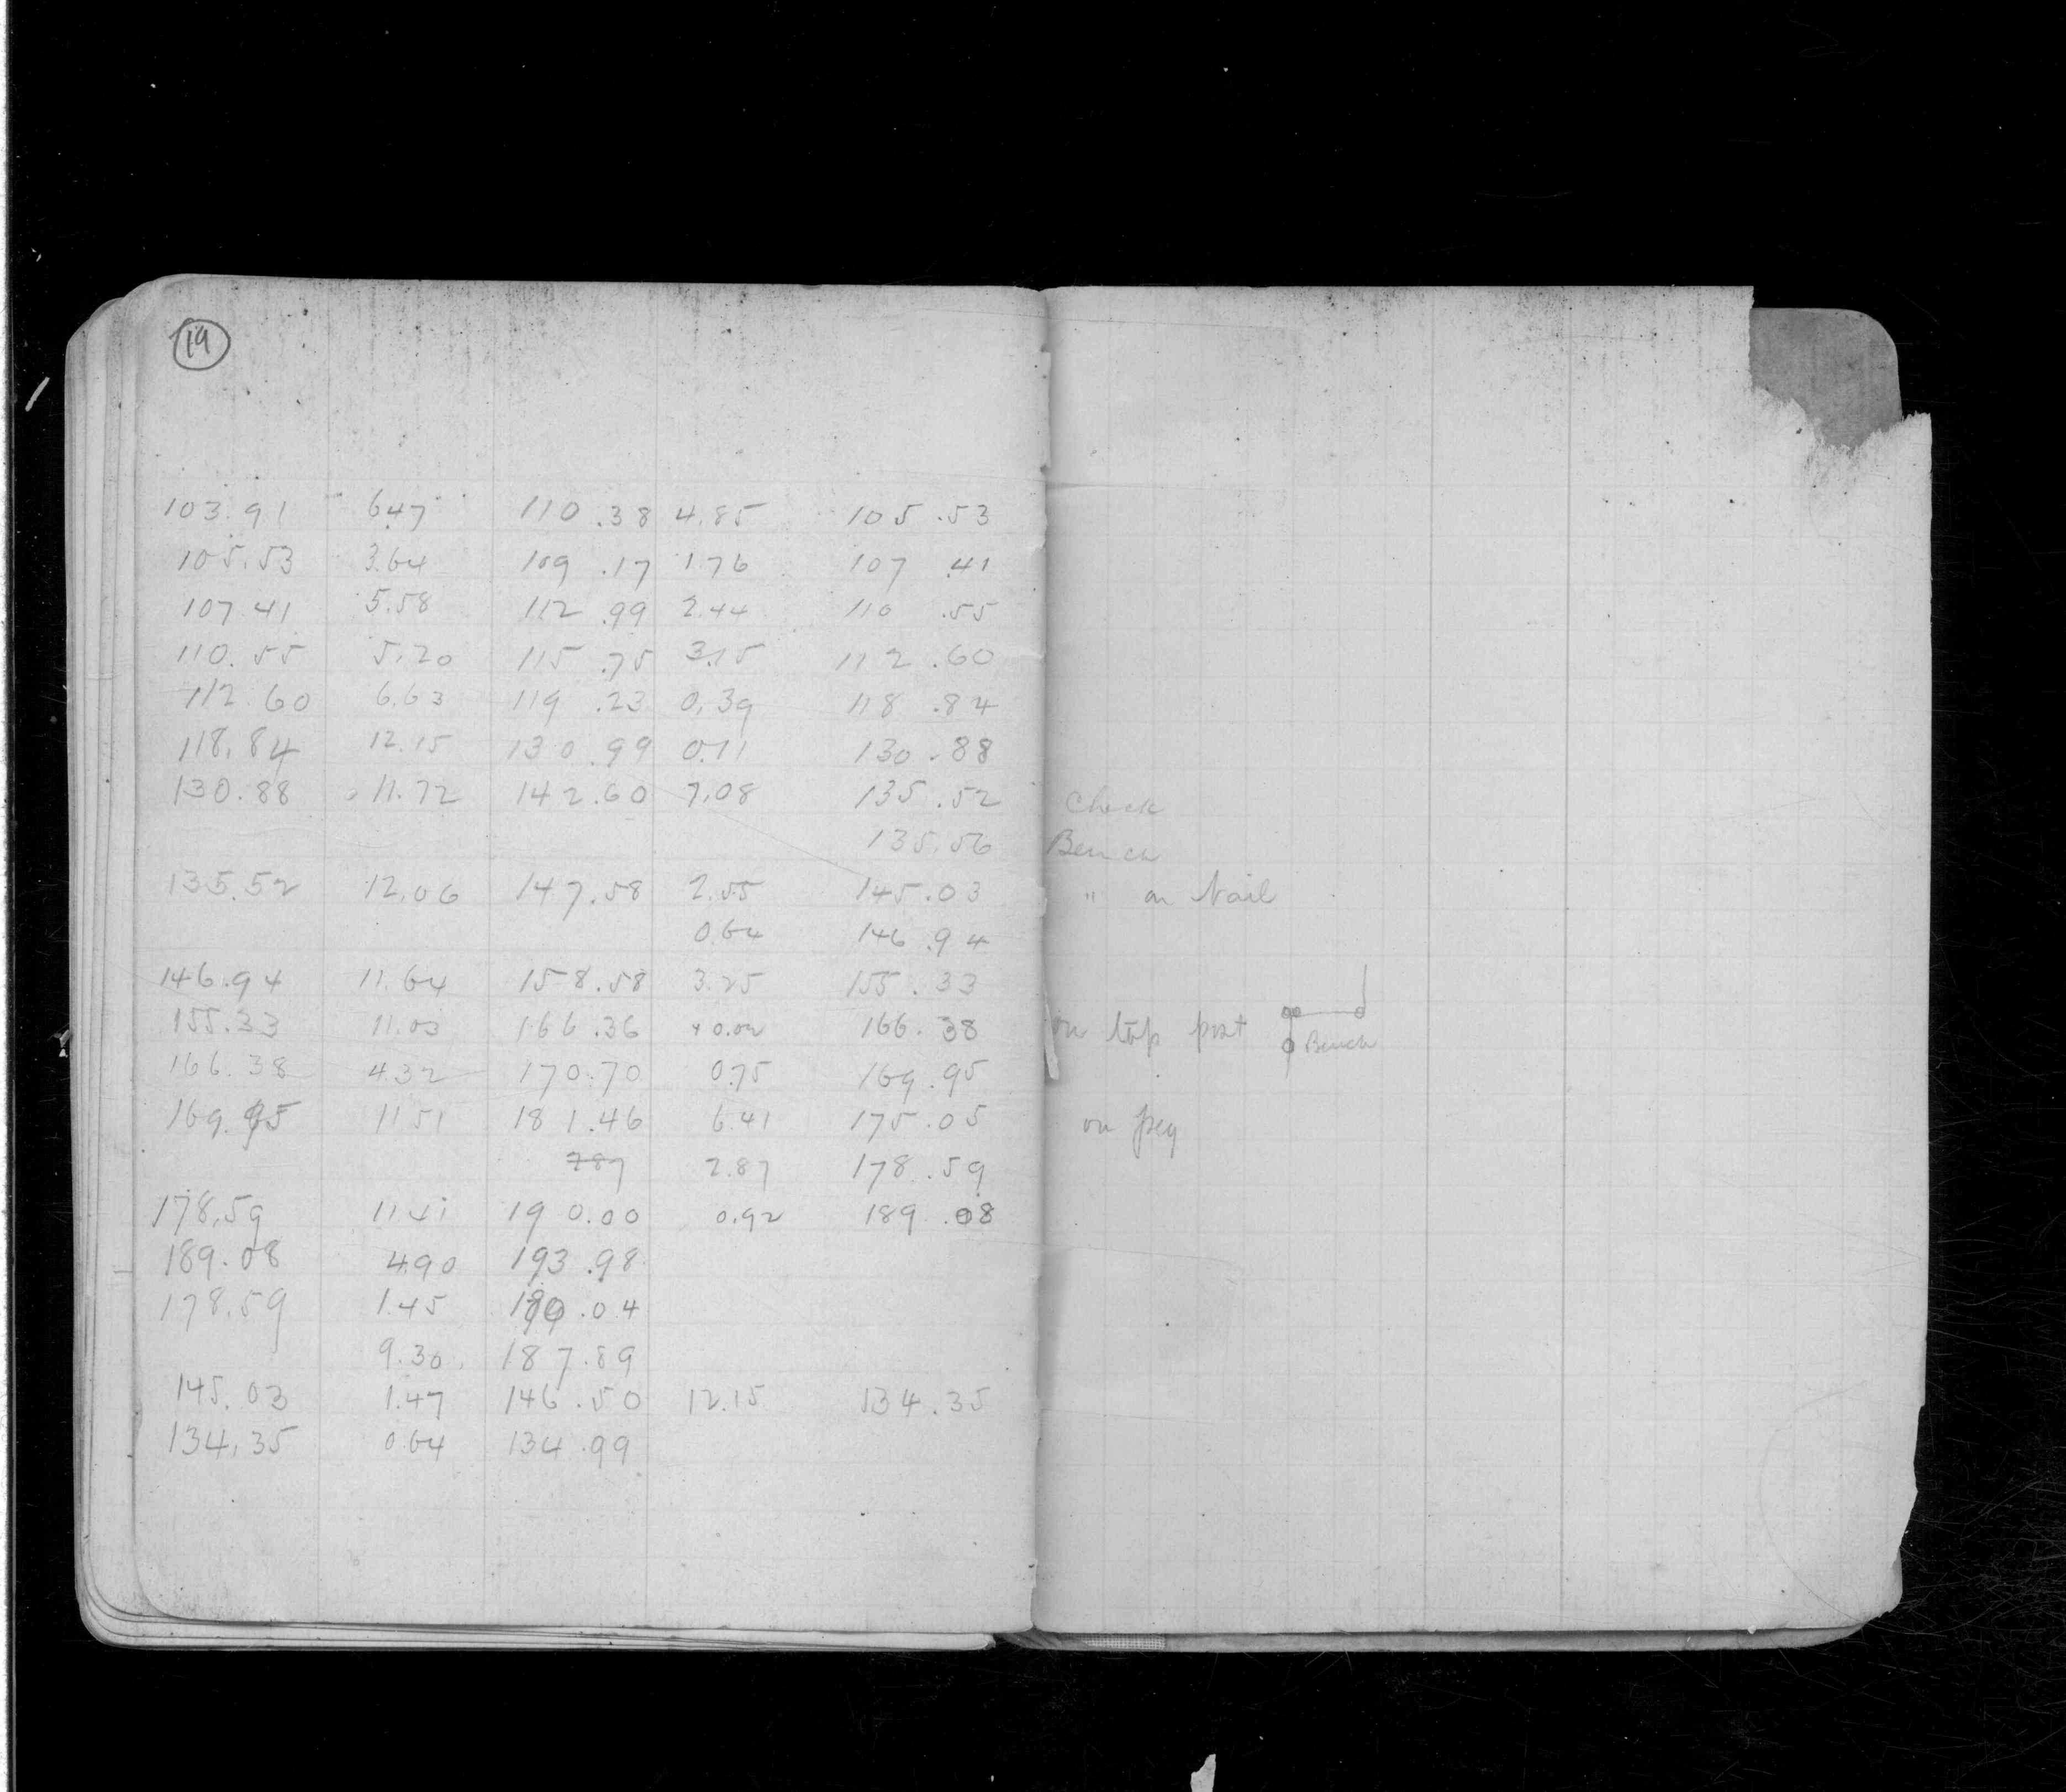 19
103.91 6.47 110.38 4.85 105.53
105.53 3.64 109.17 1.76 107.41
107.41 5.58 112.99 2.44 110.55
110.55 5.20 115.75 3.15 112.60
112.60 6.63 119.23 0.39 118.84
118.84 12.15 130.99 0.11 130.88
130.88 11.72 142.60 7.08 135.52 Check
135.56 Bench
135.52 12.06 147.58 2.55 145.03 " on Nail
0.64 146.94
146.94 11.64 158.58 3.25 155.33
155.33 11.03 166.36 +0.02 166.38 on top post Bench
166.38 4.32 170.70 0.75 169.95
169.95 11.51 181.46 6.41 175.05 on peg
287 2.87 178.59
178.59 11.41 190.00 0.92 189.08
189.08 4.90 193.98
178.59 1.45 180.04
9.30 187.89
145.03 1.47 146.50 12.15 134.35
134.35 0.64 134.99